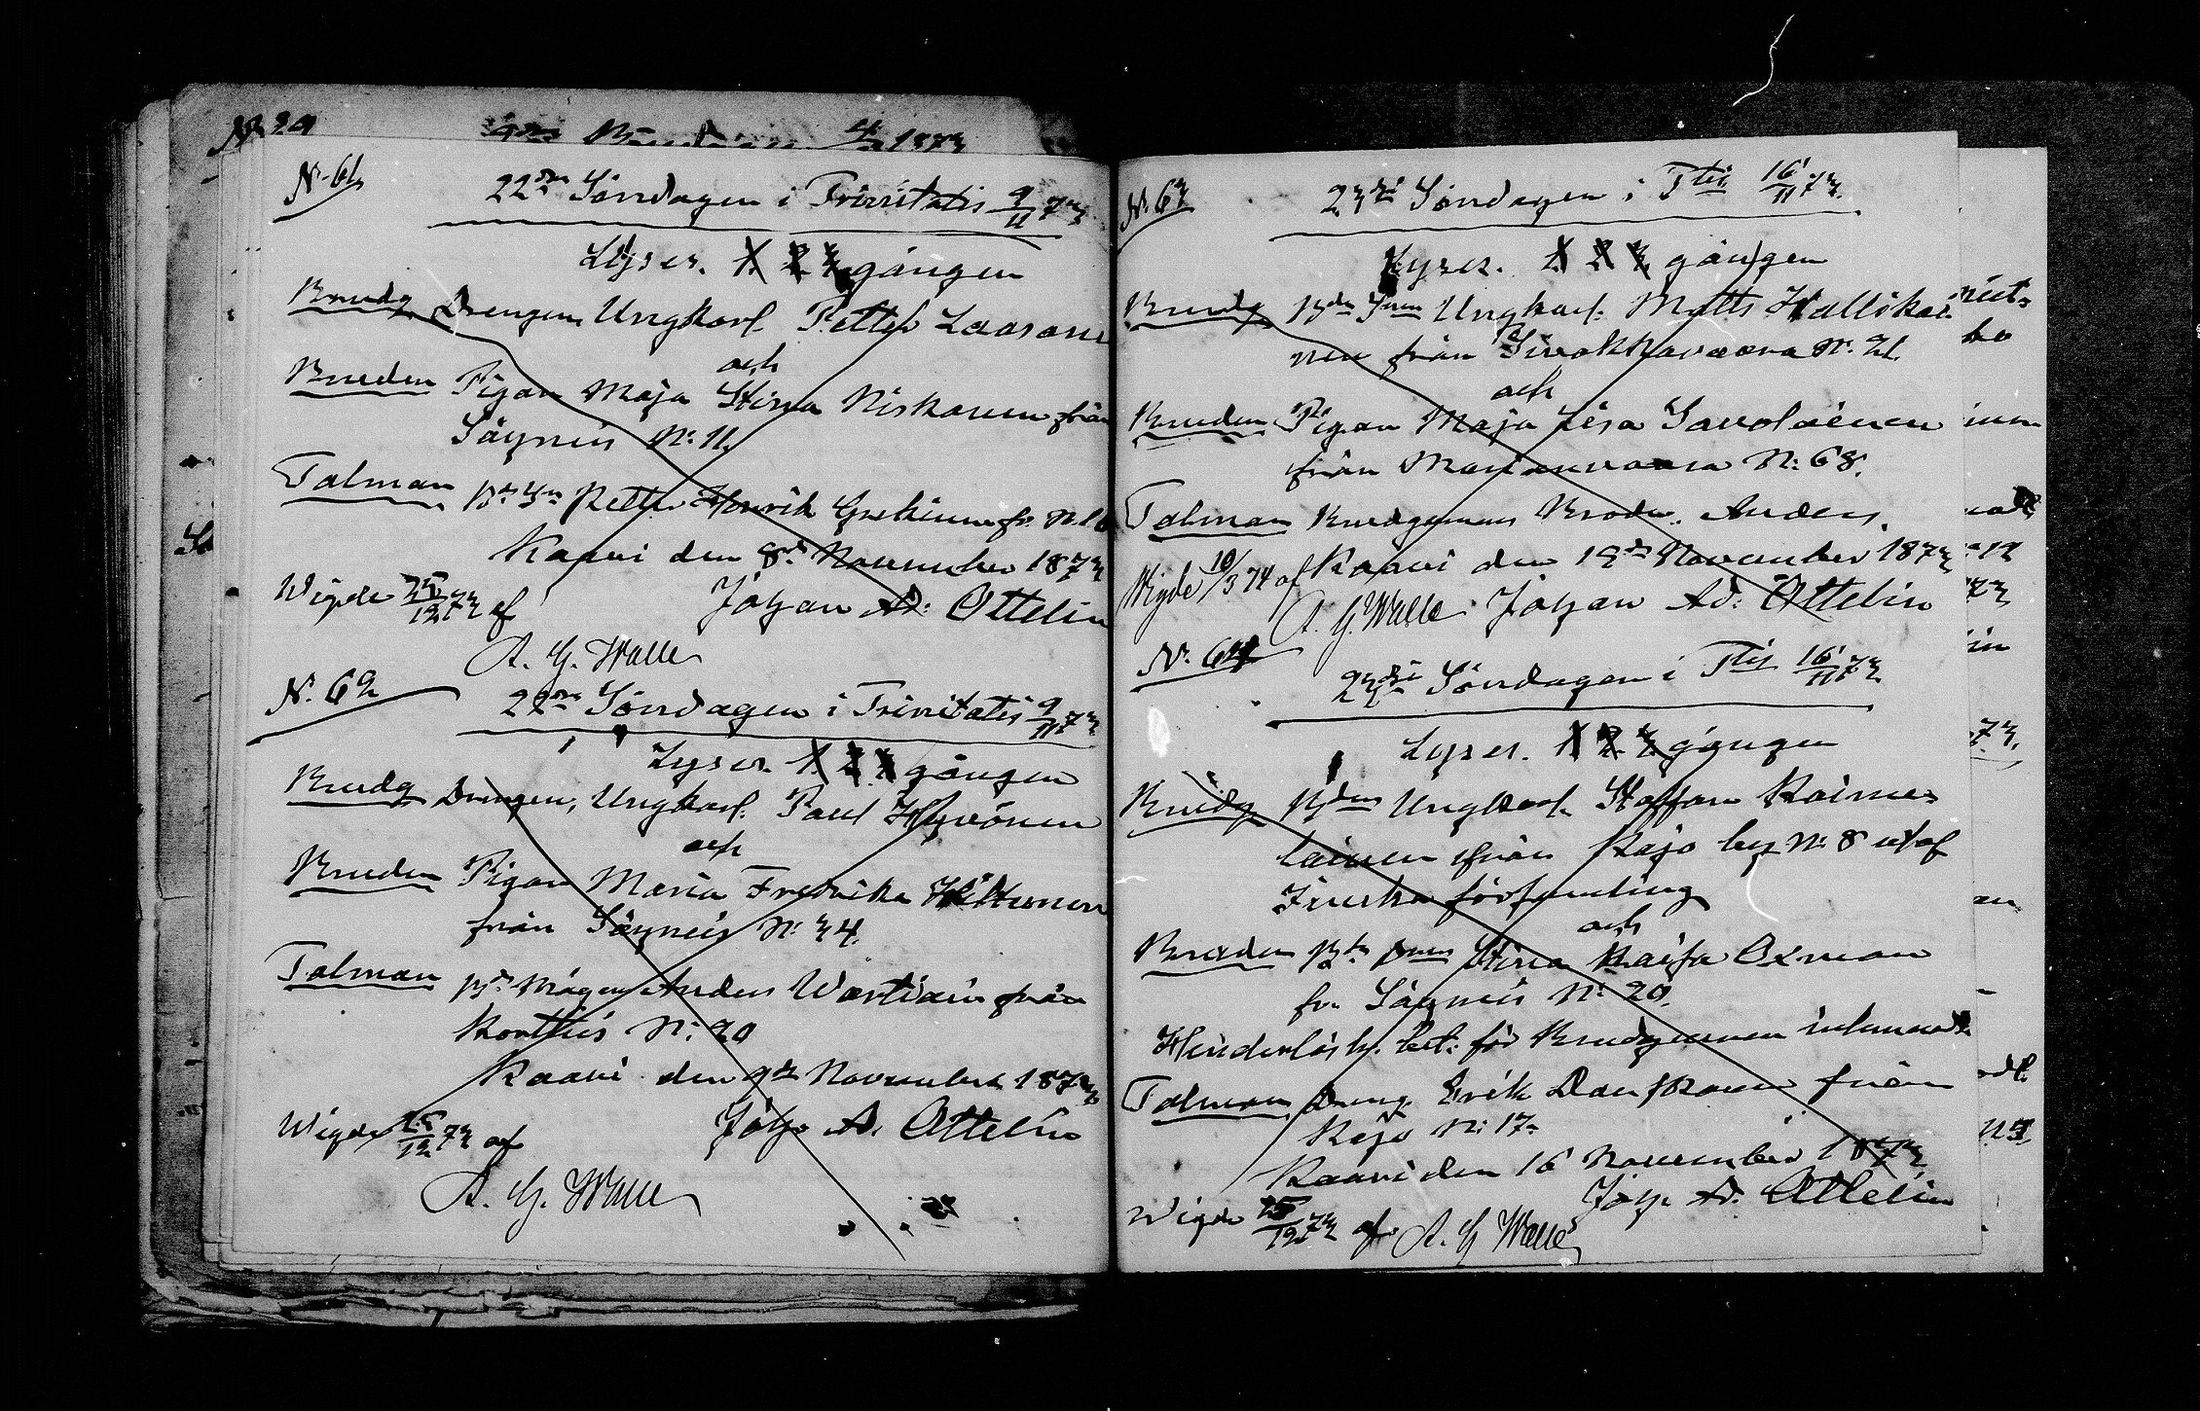 N. 61
22dra Söndagen i Trinitatis 9/11 73
Lyses. 1. 2. 3. gången
Brudg. Drengen, Ungkarl. Petter Laasane
och
Bruden Pigan Maja Stina Niskanen från
Säyneis N: 11.
Talman Bd. Sn. Petter Henrik
Kaavi den 8de November 1873
Johan Ad: Ottelin
Wigde 25/12 73 af
A. G. Walle
N. 62
22dra Söndagen i Trinitatis 9/11 73.
Lyses. 1. 2. 3. gången
Brudg Drengen, Ungkarl. Paul Hyvönen
och
Bruden Pigan Maria Fredrika
från Säyneis N: 34.
Talman Bd. Mågen Anders Wartiain från
Kortteis N: 20
Kaavi den 9de November 1873
Joh. Ad. Ottelin
Wigde 25/12 73 af
A. G. Walle
N. 63
23dje Söndagen i Ttis 16/11 73.
Lyses. 1. 2. 3. gången
Brudg Bde Snen Ungkarl. Matts Hallikai
nen från Sivakkavaara N: 21.
och
Bruden Pigan Maja Lisa Savolainen
från Marianvaara N: 68.
Talman Brudgumens Broder. Anders.
Kaavi den 12de November 1873
Wigde 10/3 74 af
A. G. Walle Johan Ad: Ottelin
N. 64
23dje Söndagen i Ttis 16/11 73
Lyses. 1. 2. 3. gången
Brudg Bden Ungkarl. Staffan Raime
lainen från Kajo by N: 8 utaf
Juuka församling
och
Bruden Bde Dren Stina Kaisa Oxman
fr. Säyneis N: 20.
Hinderlösh. bet: för Brudgumen inlemnadt
Talman Dreng. Erik Danskanen från
Kajo N: 17.
Kaavi den 16 November 1873
Joh. Ad. Ottelin
Wigde 25/12 73 af A. G. Walle